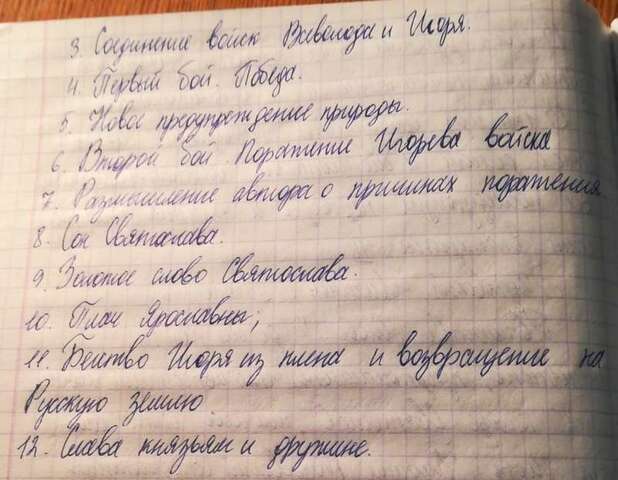 3. Соединение войск Всеволода и Игоря.
4. Первый бой. Победа.
5. Новое предупреждение природы.
6. Второй бой. Поражение Игорева войска
7. Размышление автора о причинах поражения.
8. Сон Святослава.
9. Золотое слово Святослава.
10. Плач Ярославны;
11. Бегство Игоря из плена и возвращение на
Русскую землю
12. Слава князьям и дружине.